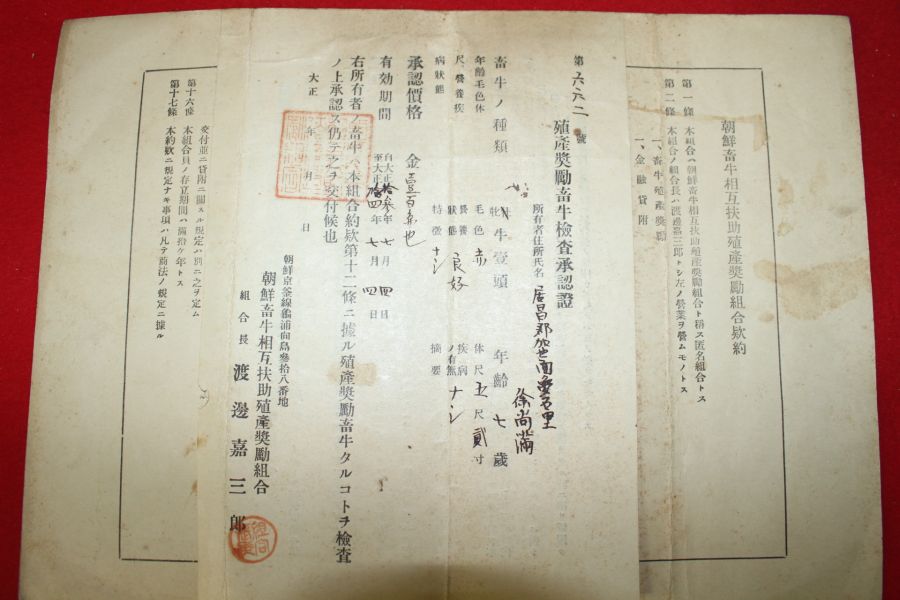 朝鮮畜牛相互扶助殖產奬勵組合欵約
第一條 本組合ハ朝鮮畜牛相互扶助殖產奬勵組合ト稱ス匿名組合トス
第二條 本組合ノ組合長ハ渡邊嘉三郎トシ左ノ營業ヲ營ムモノトス
一、畜牛殖產奬勵
一、金融貸附
第六六二號
殖產奬勵畜牛檢查承認證
所有者住所氏名 居昌郡加
徐尚滿
畜牛ノ種類 牝牛壹頭 年齡 七歲
年齡毛色体 毛色 赤 体尺 五尺貳寸
尺營養疾 營養狀態 良好 疾病ノ有無 ナシ
病狀態 特徵 ナシ 摘要
承認價格 金壹百
有効期間 自大正拾參年七月四日
至大正拾四年七月四日
右所有者ノ畜牛ハ本組合約欵第十二條ニ據ル殖產奬勵畜牛タルコトヲ檢查
ノ上承認ス仍テ之ヲ交付候也
大正 年 月 日
朝鮮京釜線龜浦面島參拾八番地
朝鮮畜牛相互扶助殖產奬勵組合
組合長 渡邊嘉三郎
交付並ニ貸附ニ關スル規定ハ別ニ之ヲ定ム
第十六條 本組合員ノ存立期間ハ滿拾ケ年トス
第十七條 本約欵ニ規定ナキ事項ハ凡テ商法ノ規定ニ據ル